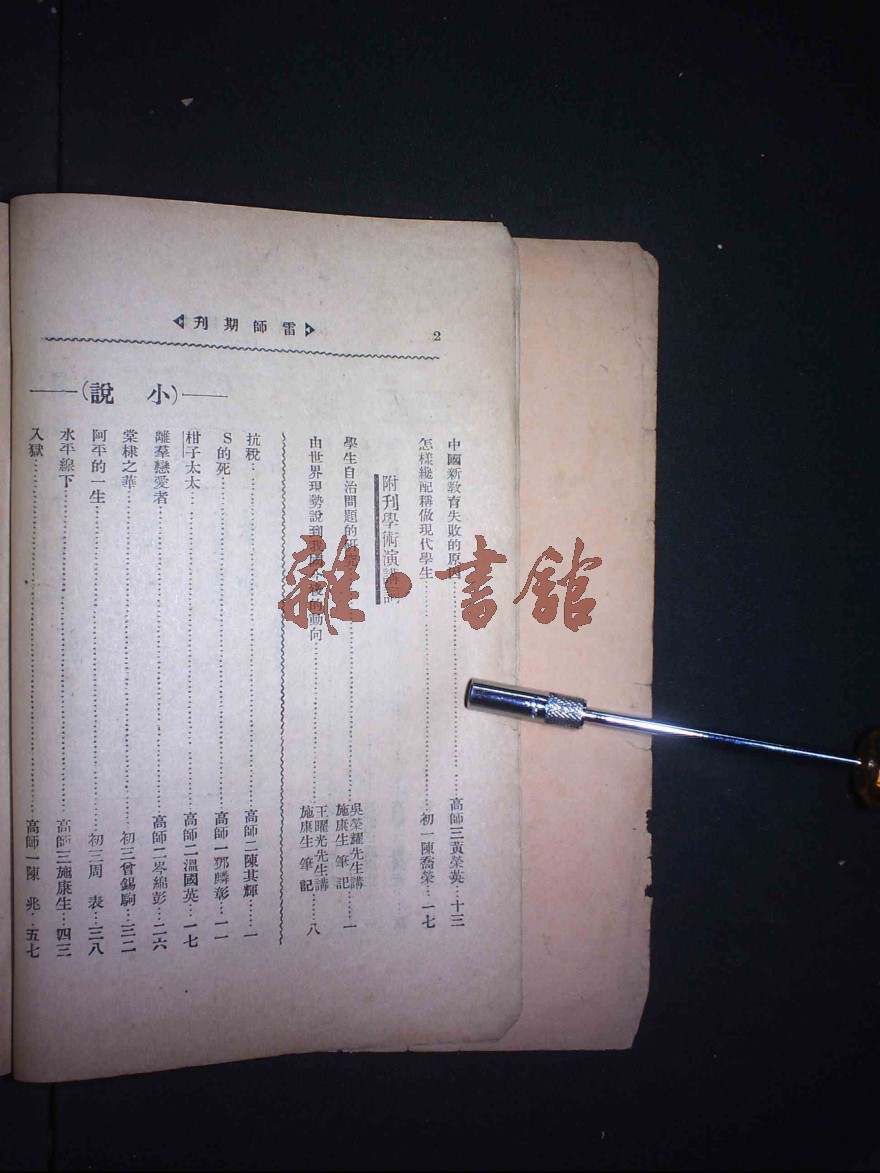 雷師期刊
2
中國新教育失敗的原因……高師三黃榮英…十三
怎樣纔配稱做現代學生……初一陳喬榮…一七
附刊學術演講詞
學生自治問題的研究……吳榮耀先生講 施康生 筆記……一
由世界現勢說到我國今後的動向……王曜光先生講 施康生 筆記……八
(小 說)
抗稅……高師二陳其輝……一
S的死……高師一鄧麟彰…一一
柑子太太……高師二溫國英…一七
離羣戀愛者……高師二岑綿彭…二六
棠棣之華……初三曾錫駒…三二
阿平的一生……初三周 表…三八
水平線下……高師三施康生…四三
入獄……高師一陳 兆…五七
雜·書舘